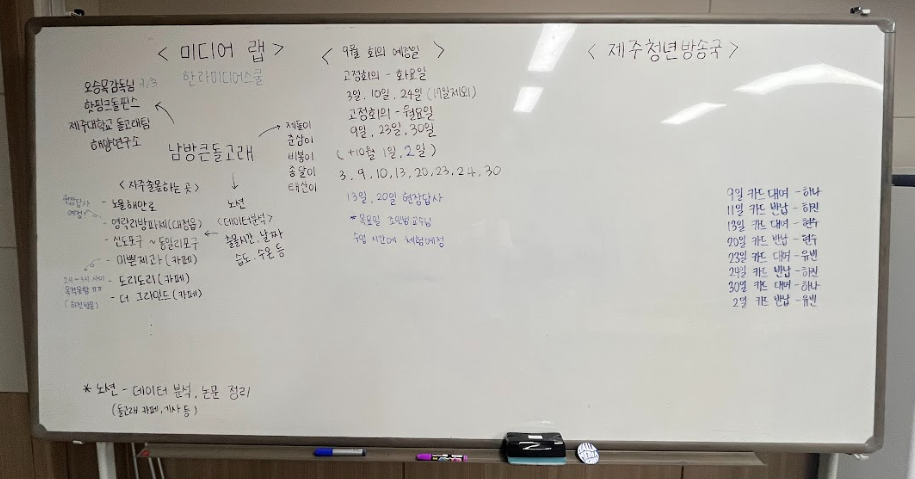 < 미디어 랩 >
한라미디어스쿨
오승목감독님
핫핑크돌핀스
제주대학교 돌고래팀
해양연구소
남방큰돌고래
제돌이
춘삼이
비봉이
종달이
태산이
<자주출몰하는 곳>
- 노을해안로
- 영락리방파제(대정읍)
- 신도포구 ~ 동일리포구
- 미쁜제과 (카페)
- 도리도리 (카페)
- 더 그라인드 (카페)
현장답사
예정?
노션
<데이터분석>
출몰시간, 날짜
습도, 수온 등
* 노션 - 데이터 분석, 논문 정리
(돌고래 카페, 기사 등)
< 9월 회의 예정일 >
고정회의 - 화요일
3일, 10일, 24일 (17일제외)
고정회의 - 월요일
9일, 23일, 30일
(+10월 1일, 2일)
3, 9, 10, 13, 20, 23, 24, 30
13일, 20일 현장답사
* 목요일 조민범교수님
수업 시간에 체험예정
< 제주청년방송국 >
9일 카드 대여 - 하나
11일 카드 반납 - 하진
13일 카드 대여 - 현수
20일 카드 반납 - 현수
23일 카드 대여 - 유빈
24일 카드 반납 - 하진
30일 카드 대여 - 하나
2일 카드 반납 - 유빈